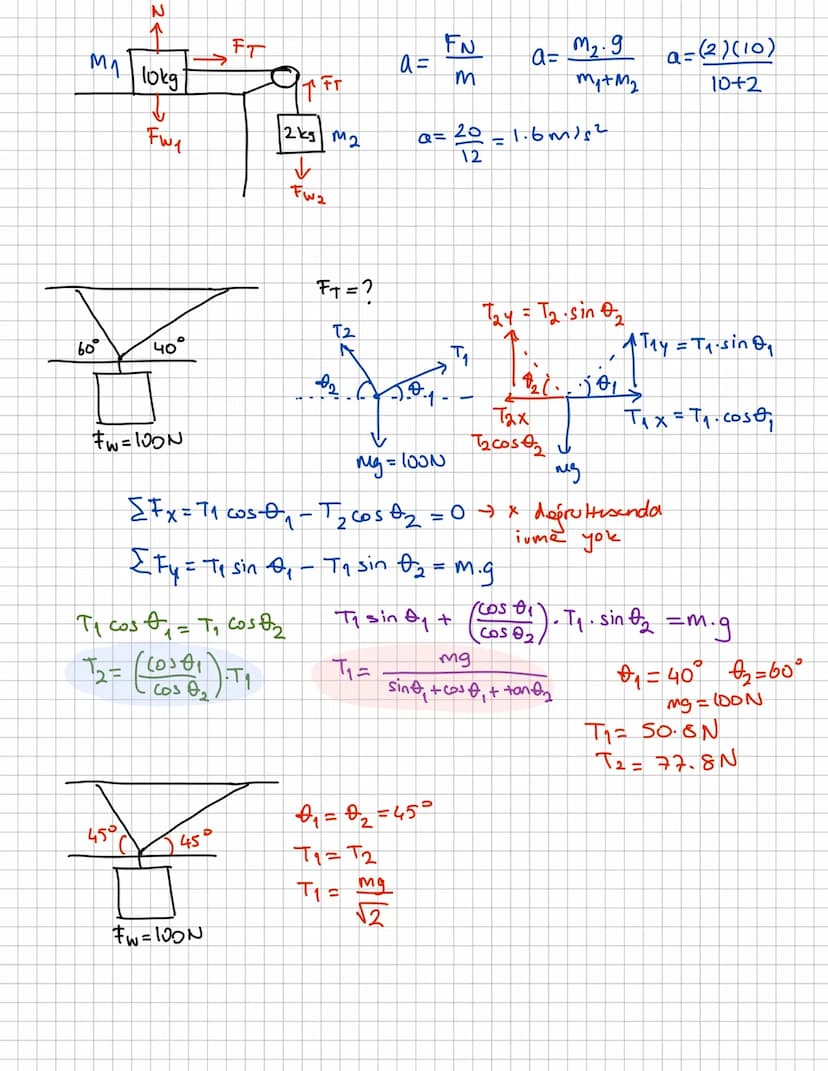 N
FT
M1
10kg
FT
Fw1
2kg
M2
Fw2
a = FN / m
a = m2.g / m1+M2
a = (2)(10) / 10+2
a = 20 / 12 = 1.6 m/s²
FT = ?
60° 40°
Fw = 100N
T2
T1
θ2
θ1
mg = 100N
T2y = T2.sin θ2
T1y = T1.sin θ1
θ2
θ1
T2x
T2cosθ2
T1x = T1.cosθ1
mg
ΣFx = T1 cosθ1 - T2 cosθ2 = 0 → x doğrultusunda
ivme yok
ΣFy = T1 sin θ1 - T1 sin θ2 = m.g
T1 cos θ1 = T1 cosθ2
T1 sin θ1 + (cos θ1 / cos θ2) . T1 . sin θ2 = m.g
T2 = (cosθ1 / cos θ2) . T1
T1 = mg / sinθ1 + cosθ1 + tanθ2
θ1 = 40° θ2 = 60°
mg = 100N
T1 = 50.8N
T2 = 77.8N
45° 45°
Fw = 100N
θ1 = θ2 = 45°
T1 = T2
T1 = mg / √2